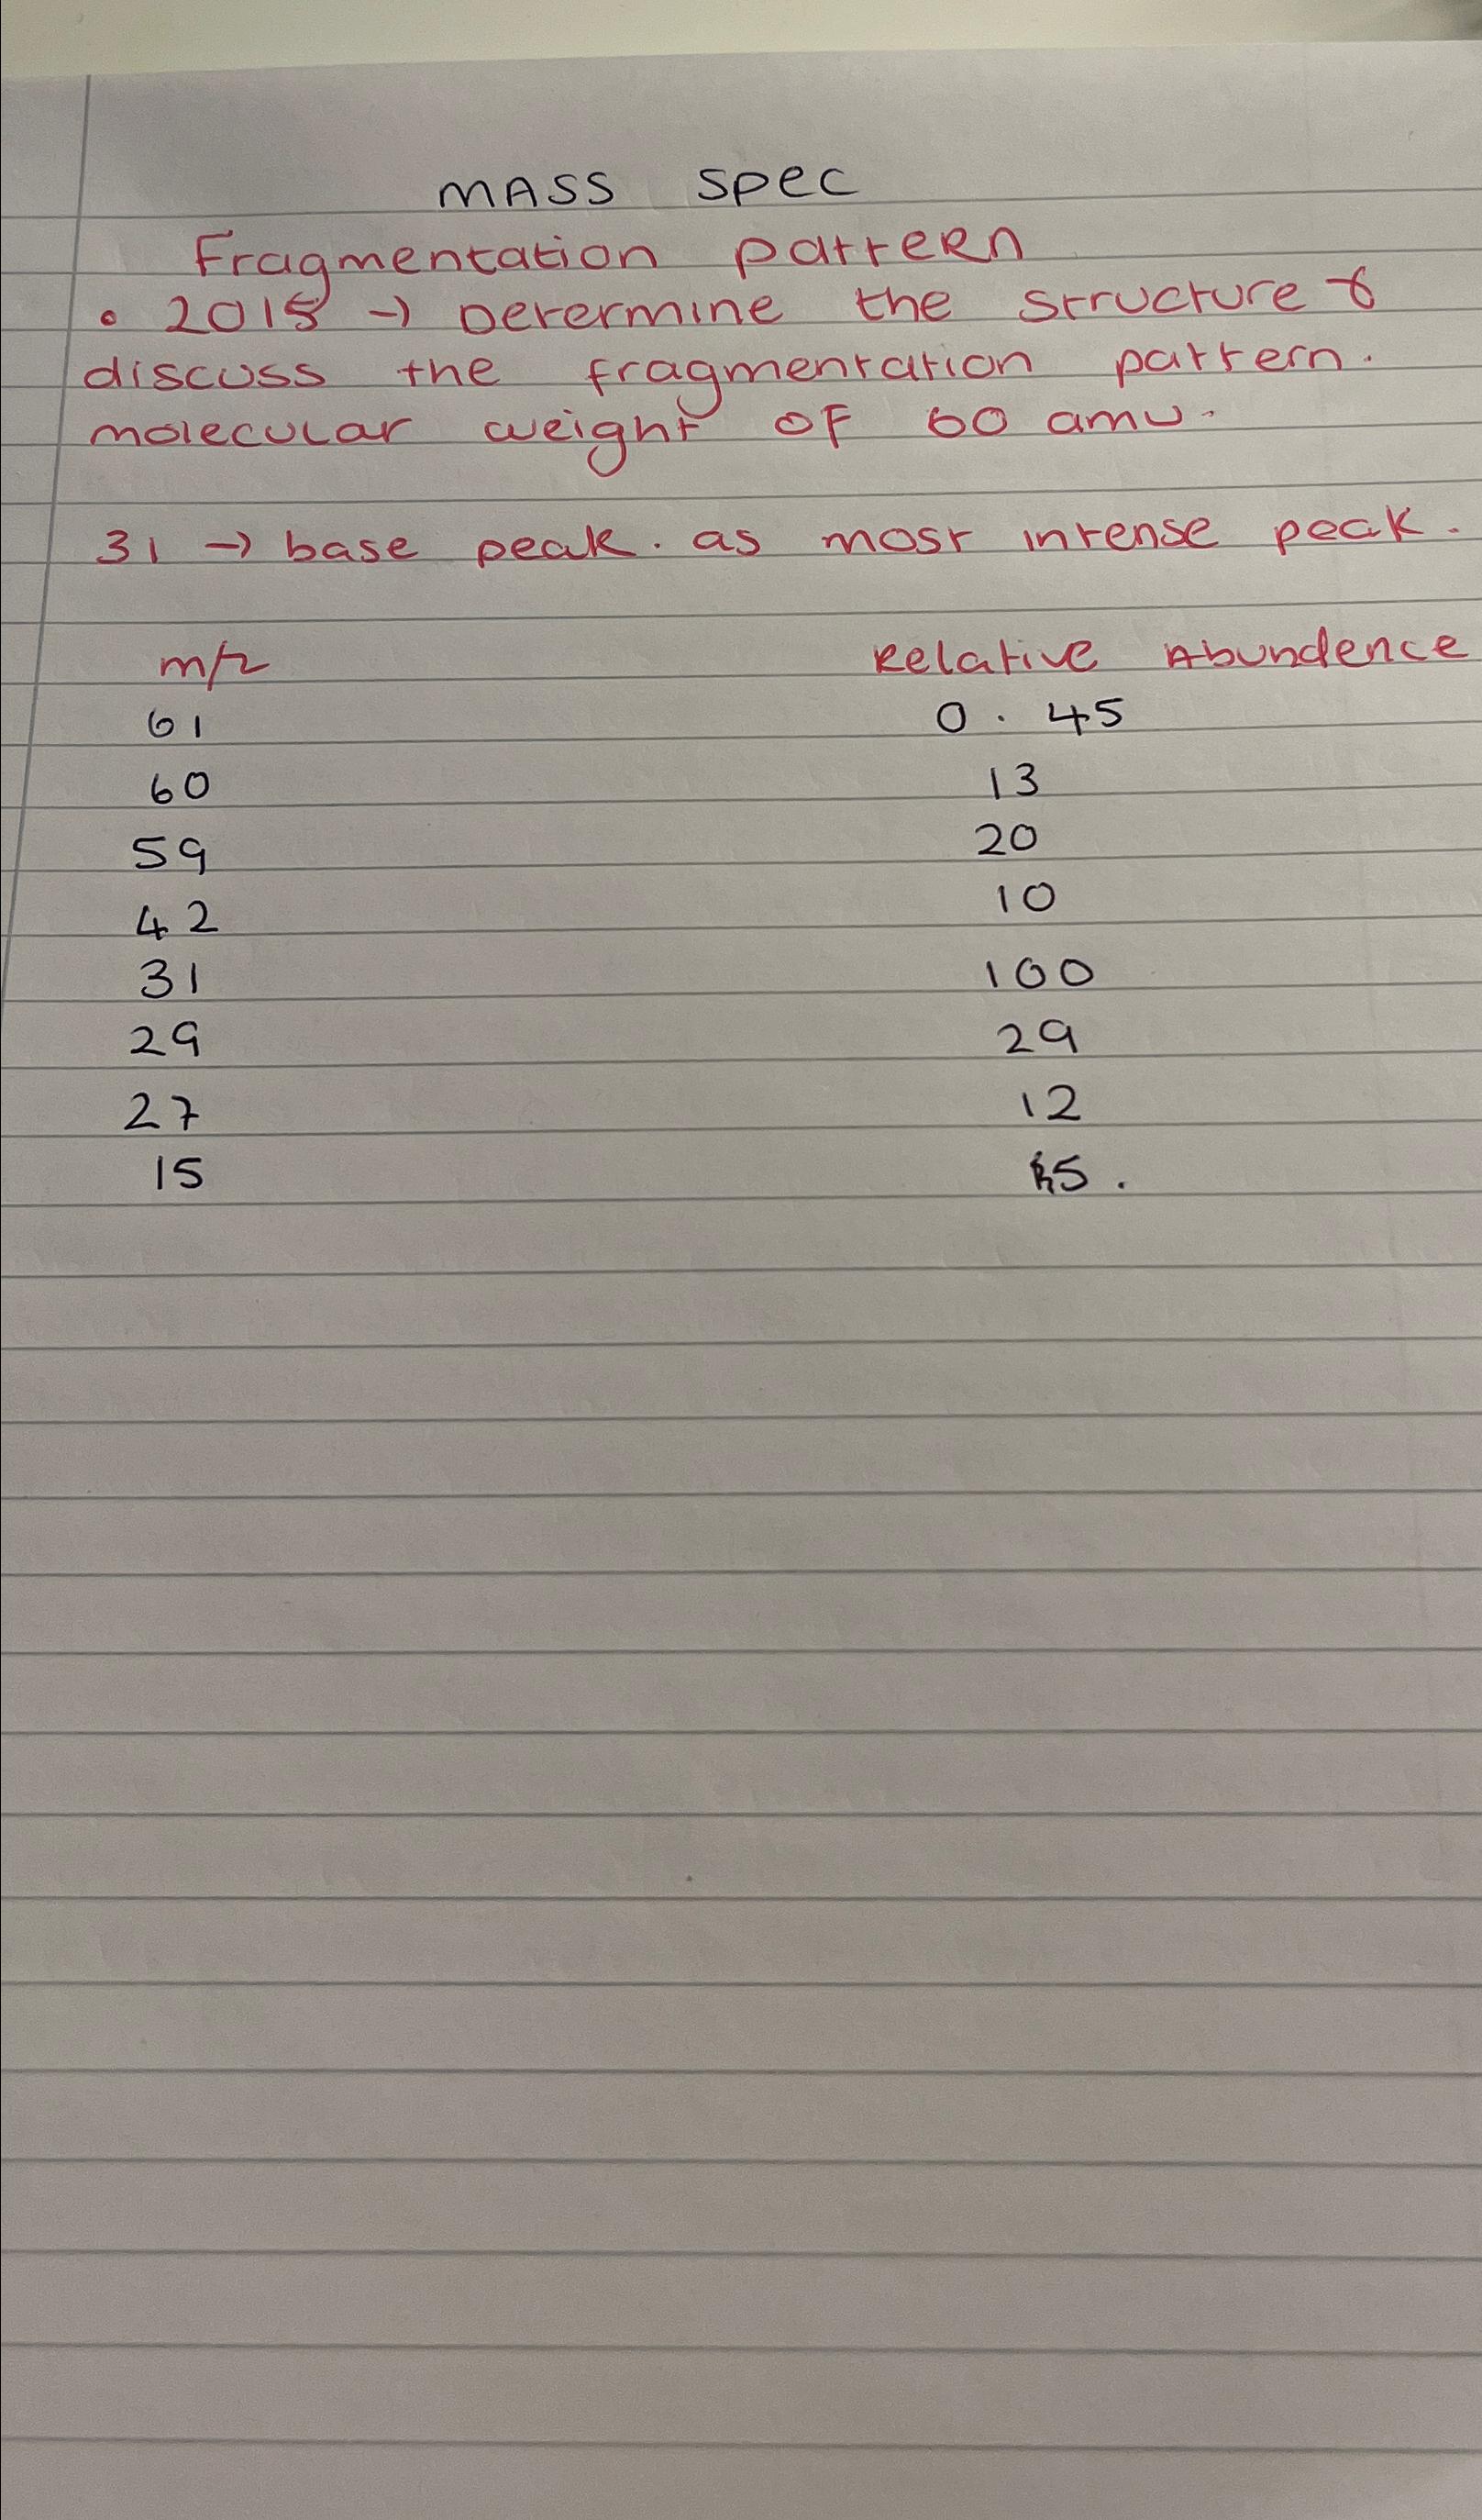 MASS Spec
Fragmentation pattern
• 2015 → Determine the structure &
discuss the fragmentation pattern.
molecular weight of 60 amu.
31 → base peak. as most intense peak.
m/z Relative Abundence
61 0.45
60 13
59 20
42 10
31 100
29 29
27 12
15 5.